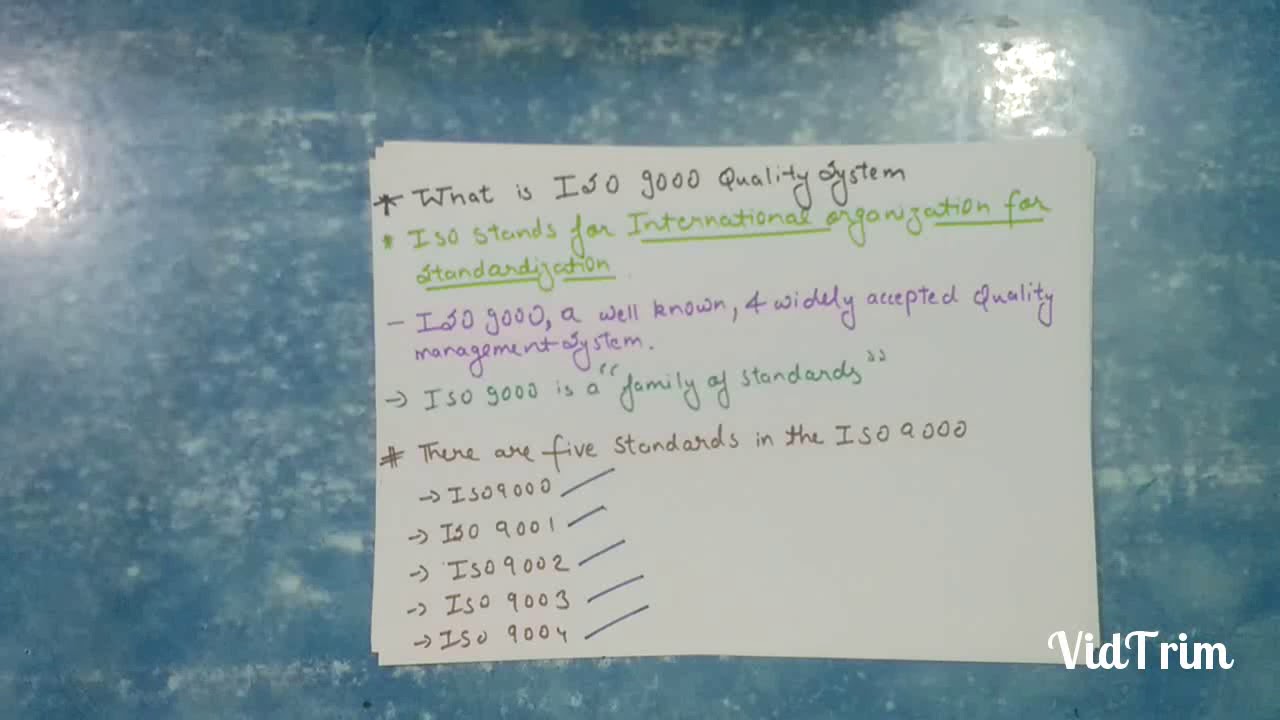 * What is ISO 9000 Quality System
* Iso stands for International organization for
standardization
- ISO 9000, a well known, & widely accepted Quality
management System.
→ ISO 9000 is a "family of standards"
# There are five standards in the ISO 9000
→ ISO 9000
→ ISO 9001
→ ISO 9002
→ ISO 9003
→ ISO 9004
VidTrim